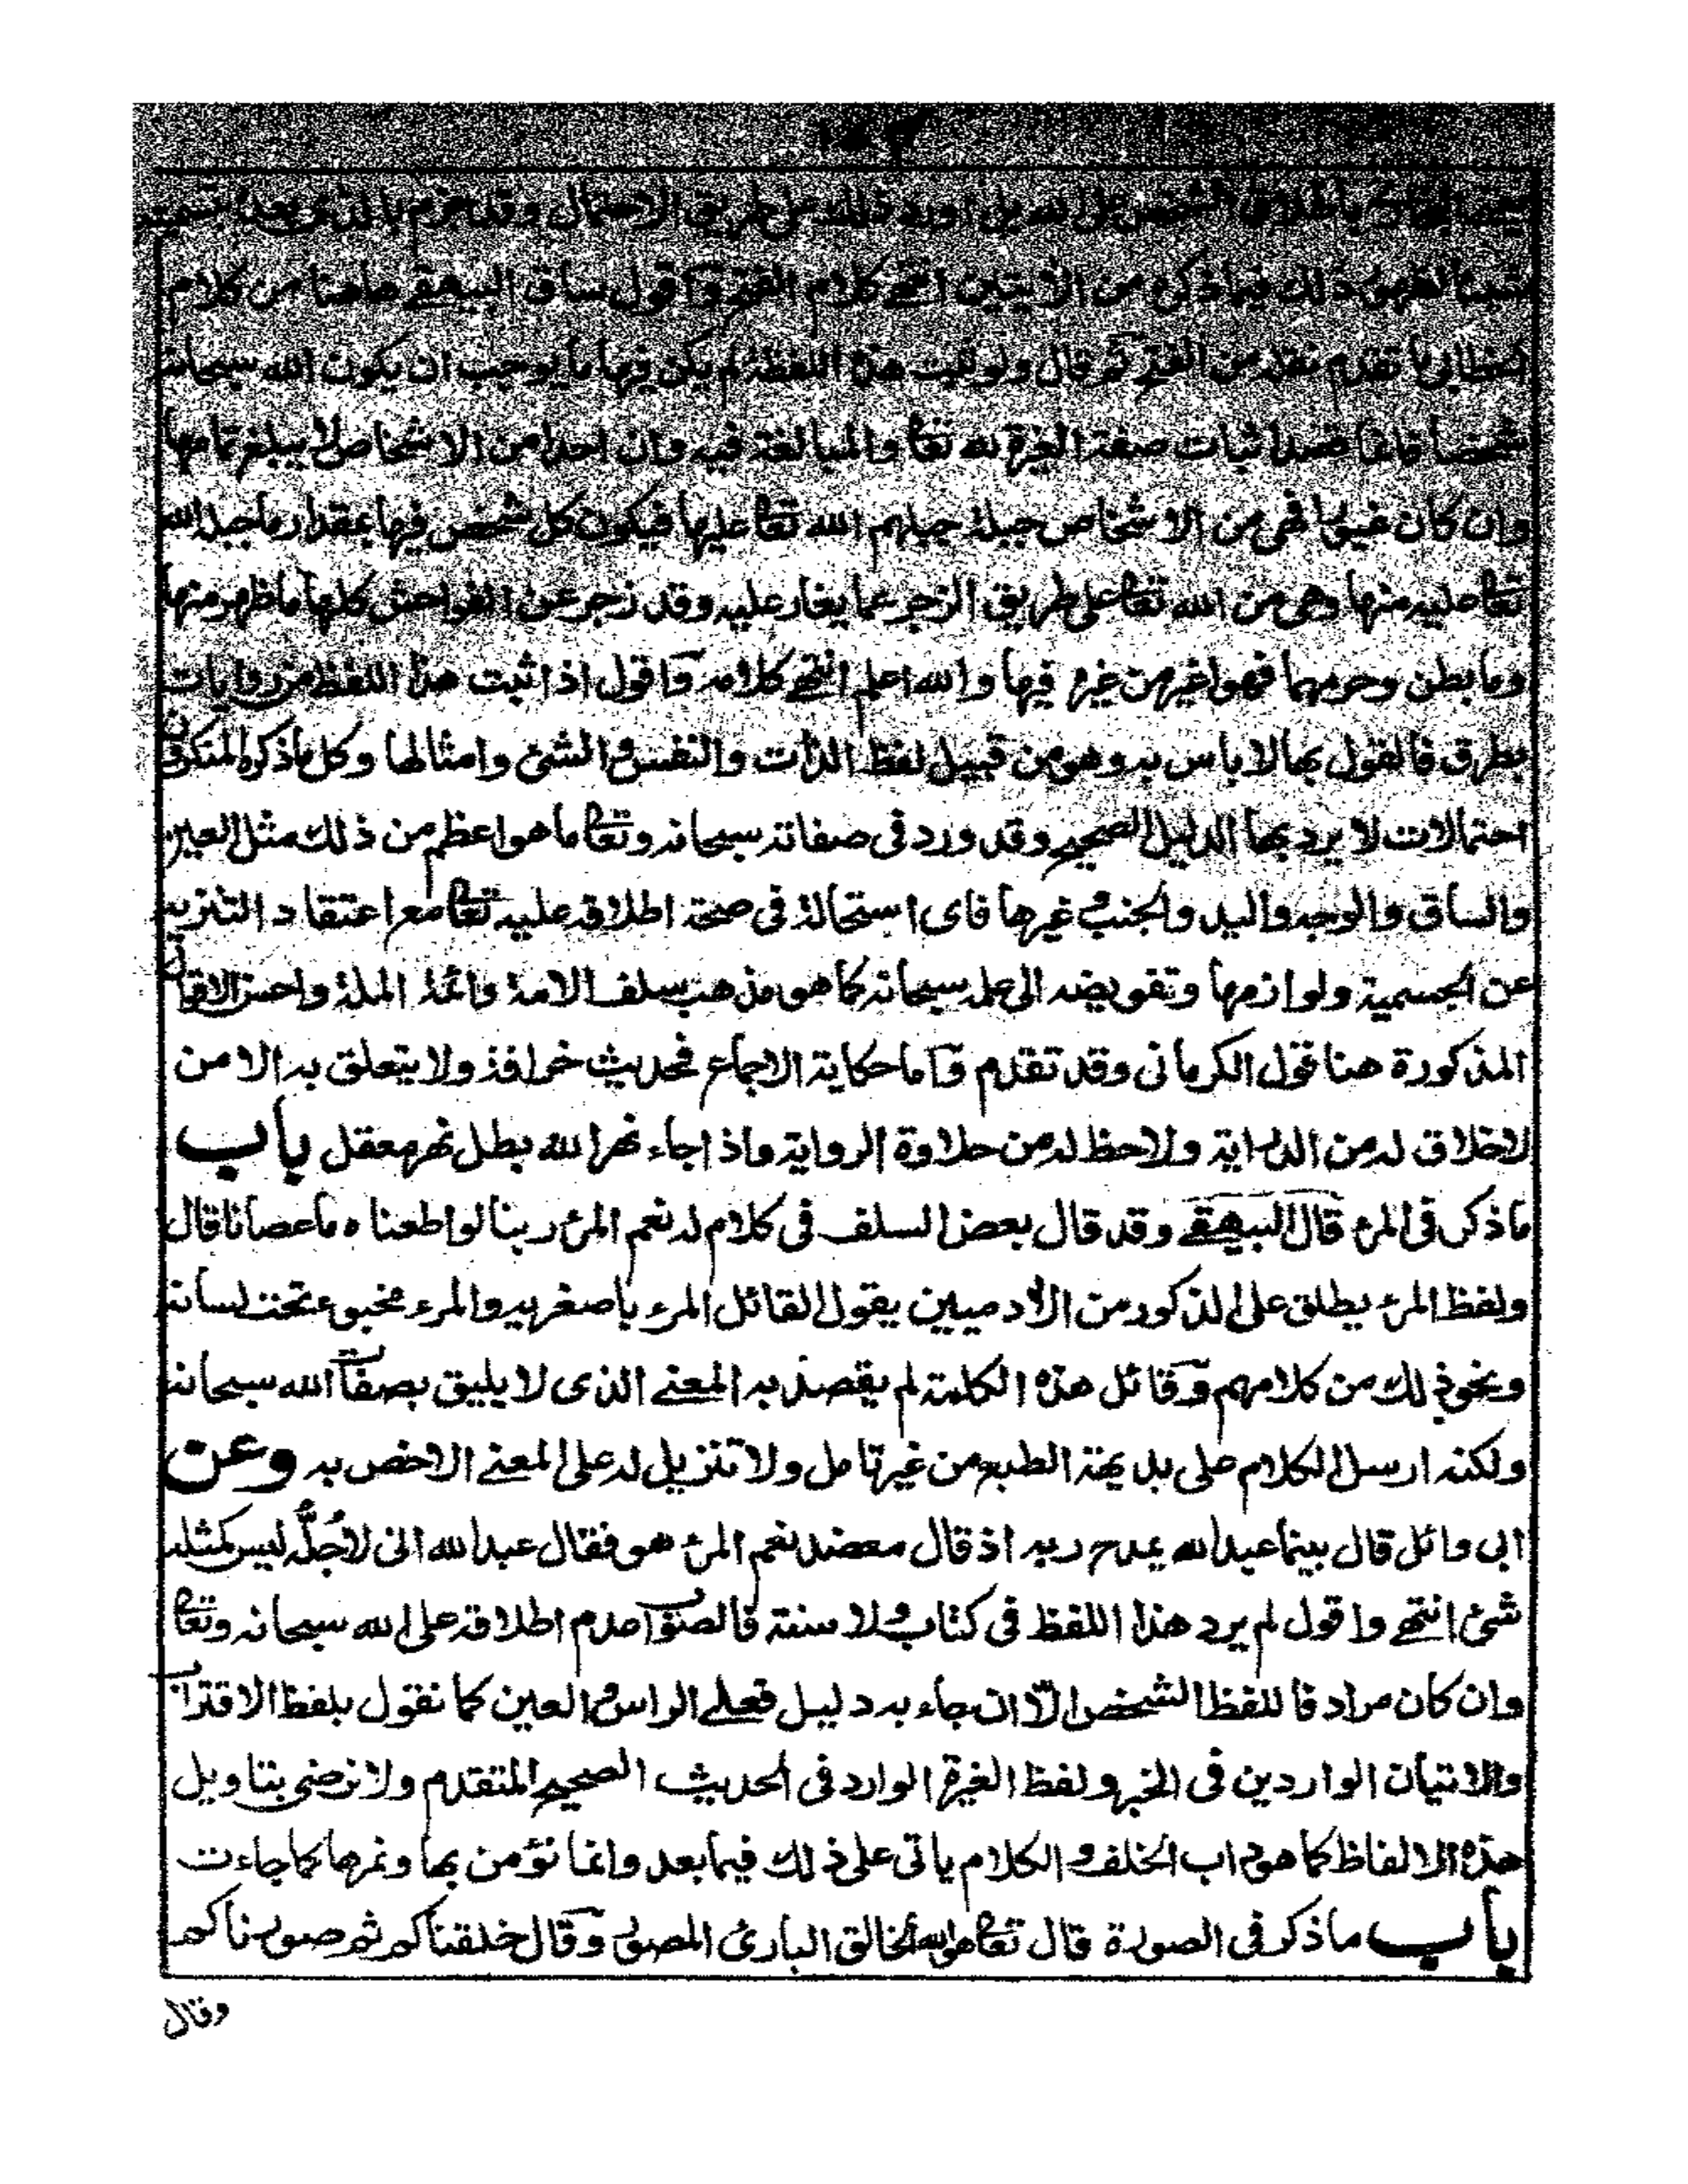 باطلاق الشخص على الله بل اورد ذلك على طريق الاحتمال وقد جزم بالذى بعده تسميته
شيئا لظهور ذلك فيما ذكره من الآيتين انتهى كلام الفتح واقول ساق البيهقى ههنا من كلام
الخطابى ما تقدم نقله من الفتح ثم قال ولو ثبت هذه اللفظة لم يكن فيها ما يوجب ان يكون الله سبحانه
شخصا فانما قصد اثبات صفة الغيرة لله تعا والمبالغة فيه وان احدا من الاشخاص لا يبلغ تمامها
وان كان غيورا فهى من الاشخاص جبلة جبلهم الله تعا عليها فيكون كل شخص فيها بمقدار ما جبله الله
تعا عليه منها وهى من الله تعا على طريق الزجر عما يغار عليه وقد زجر عن الفواحش كلها ما ظهر منها
وما بطن وحرمها فهو اغير من غيره فيها والله اعلم انتهى كلامه واقول اذا ثبت هذا اللفظ من روايات
بطرق فالقول بها لا باس به وهو من قبيل لفظ الذات والنفس والشئ وامثالها وكل ما ذكره المنكرون
احتمالات لا يرد بها الدليل الصحيح وقد ورد فى صفاته سبحانه وتعا ما هو اعظم من ذلك مثل العين
والساق والوجه واليد والجنب وغيرها فاى استحالة فى صحة اطلاقه عليه تعا مع اعتقاد التنزيه
عن الجسمية ولوازمها وتفويضه الى علمه سبحانه كما هو مذهب سلف الامة وائمة الملة واحسن الاقوال
المذكورة هنا قول الكرمانى وقد تقدم واما حكاية الاجماع فحديث خرافة ولا يتعلق به الا من
لاخلاق له من الدراية ولاحظ له من حلاوة الرواية واذا جاء نهر الله بطل نهر معقل باب
ما ذكر فى المرء قال البيهقى وقد قال بعض السلف فى كلام له نعم المرء ربنا لو اطعناه ما عصانا قال
ولفظ المرء يطلق على المذكور من الآدميين يقول القائل المرء باصغريه والمرء مخبوء تحت لسانه
ونحو ذلك من كلامهم وقائل هذه الكلمة لم يقصد به المعنى الذى لا يليق بصفات الله سبحانه
ولكنه ارسل الكلام على بديهة الطبع من غير تامل ولا تنزيل له على المعنى الاخص به وعن
ابى وائل قال بينما عبد الله يمدح ربه اذ قال معضد نعم المرء هو فقال عبد الله انى لاُجلُّه ليس كمثله
شئ انتهى واقول لم يرد هذا اللفظ فى كتاب ولا سنة فالصواب عدم اطلاقه على الله سبحانه وتعا
وان كان مرادفا للفظ الشخص الّا ان جاء به دليل فعلى الراس والعين كما نقول بلفظ الاقتراب
والاتيان الواردين فى الخبر ولفظ الغيرة الوارد فى الحديث الصحيح المتقدم ولا نرضى بتاويل
هذه الالفاظ كما هو داب الخلف والكلام ياتى على ذلك فيما بعد وانما نؤمن بها ونمرها كما جاءت
باب ما ذكر فى الصورة قال تعا هو الله الخالق البارئ المصور وقال خلقناكم ثم صورناكم
وقال